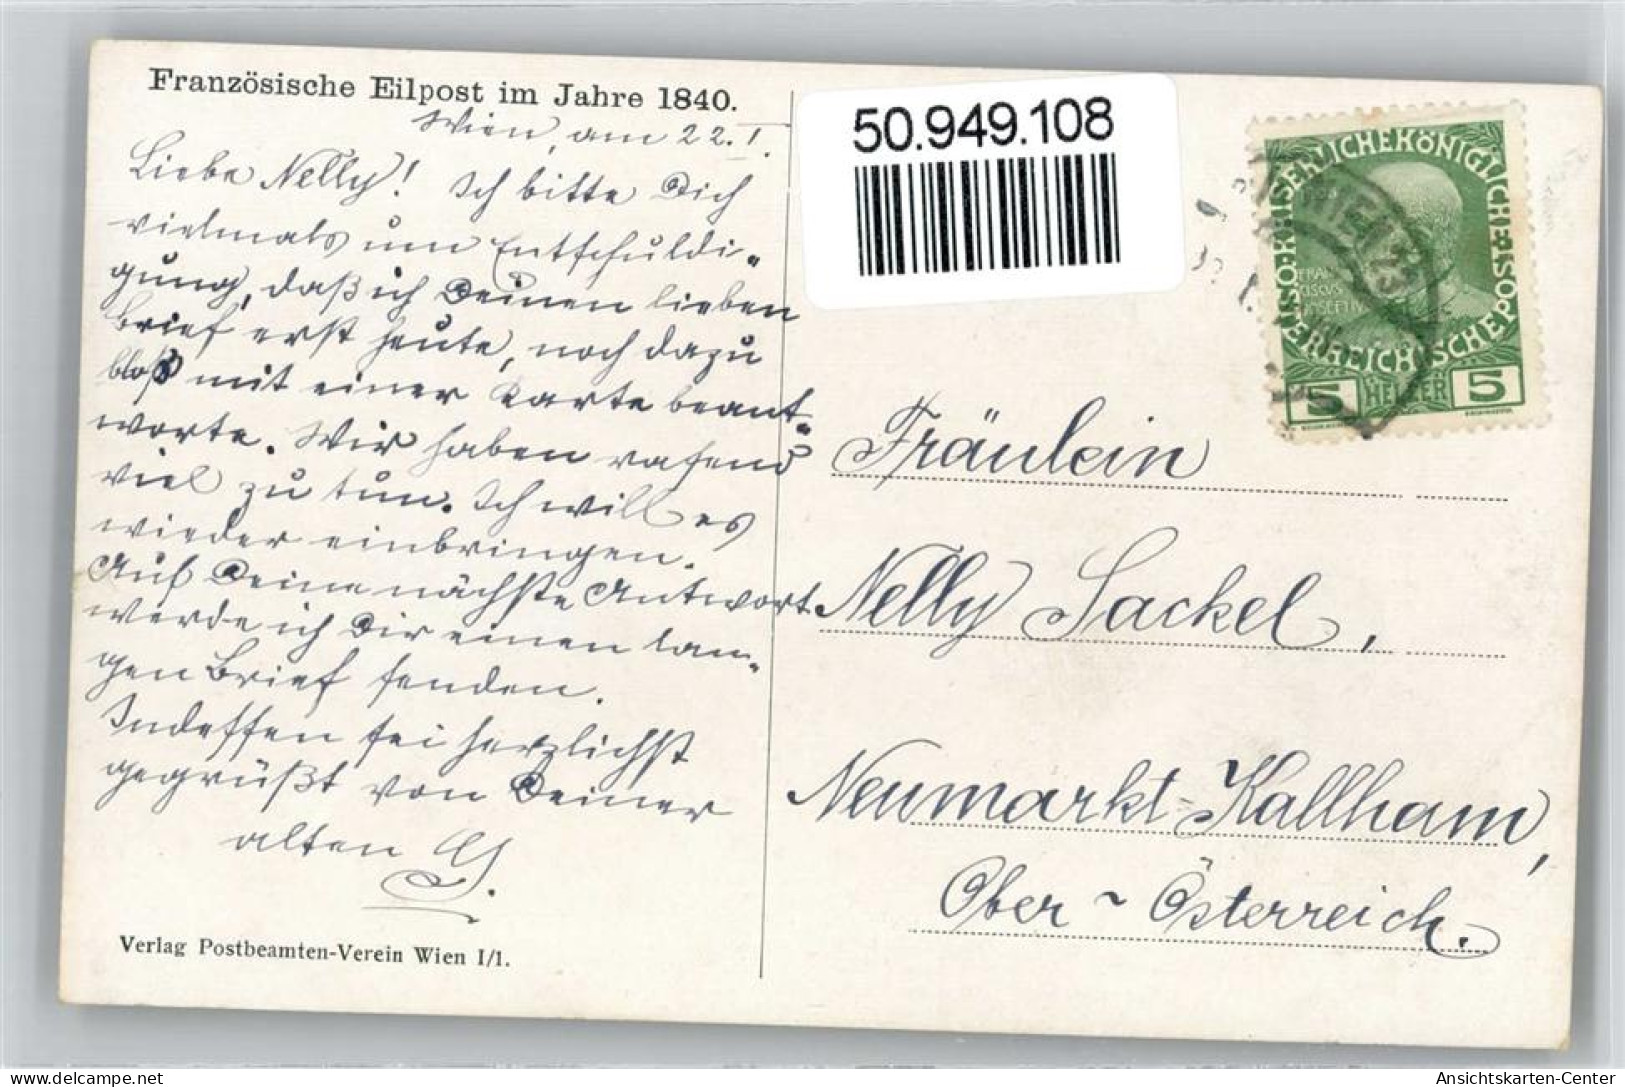 Französische Eilpost im Jahre 1840.
Wien, am 22. I.
Liebe Nelly! Ich bitte Dich
vielmals um Entschuldi-
gung, daß ich Deinen lieben
Brief erst heute, noch dazu
bloß mit einer Karte beant-
worte. Wir haben rasend
viel zu tun. Ich will es
wieder einbringen.
Auf Deine nächste Antwort
werde ich Dir einen lan-
gen Brief senden.
Indessen sei herzlichst
gegrüßt von Deiner
alten G.
Verlag Postbeamten-Verein Wien I/1.
50.949.108
KAISERLICHEKÖNIGLICHE
ÖSTERREICHISCHE POST
FRAN
CISCVS
IOSEPHVS
5 HELLER 5
WIEN
Fräulein
Nelly Sackel,
Neumarkt-Kallham,
Ober-Österreich.
Ansichtskarten-Center